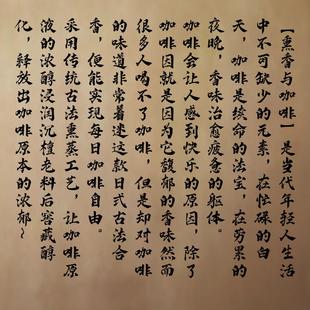 【熏香与咖啡】是当代年轻人生活
中不可缺少的元素，在忙碌的白
天，咖啡是续命的法宝，在劳累的
夜晚，香味治愈疲惫的躯体。
咖啡会让人感到快乐的原因，除了
咖啡因就是因为它馥郁的香味然而
很多人喝不了咖啡，但是却对咖啡
的味道非常着迷这款日式古法合
香，便能实现每日咖啡自由。
采用传统古法熏蒸工艺，让咖啡原
液的浓醇浸润沉檀老料后窖藏醇
化，释放出咖啡原本的浓郁~